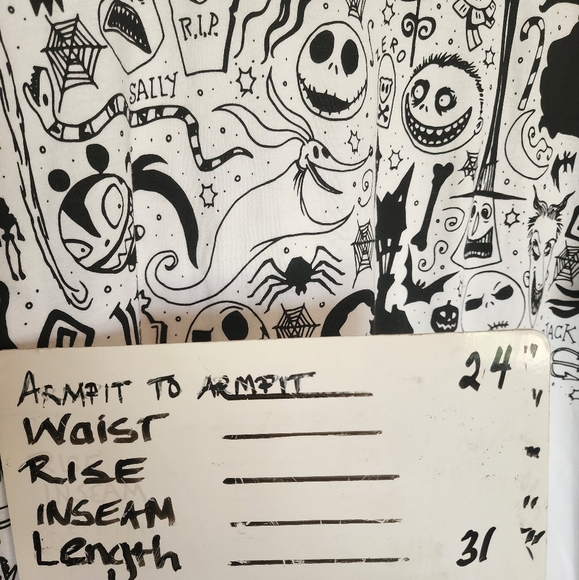 R.I.P.
SALLY
ERO
JACK
ARMPIT TO ARMPIT 24"
Waist "
RISE "
INSEAM "
Length 31"